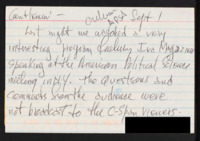 Gentlemen - Sept 1
Last night we watched a very
interesting program featuring Ira Magaziner
speaking at the American Political Science
meeting in NY. The questions and
comments from the audience were
not broadcast to the C-Span viewers.